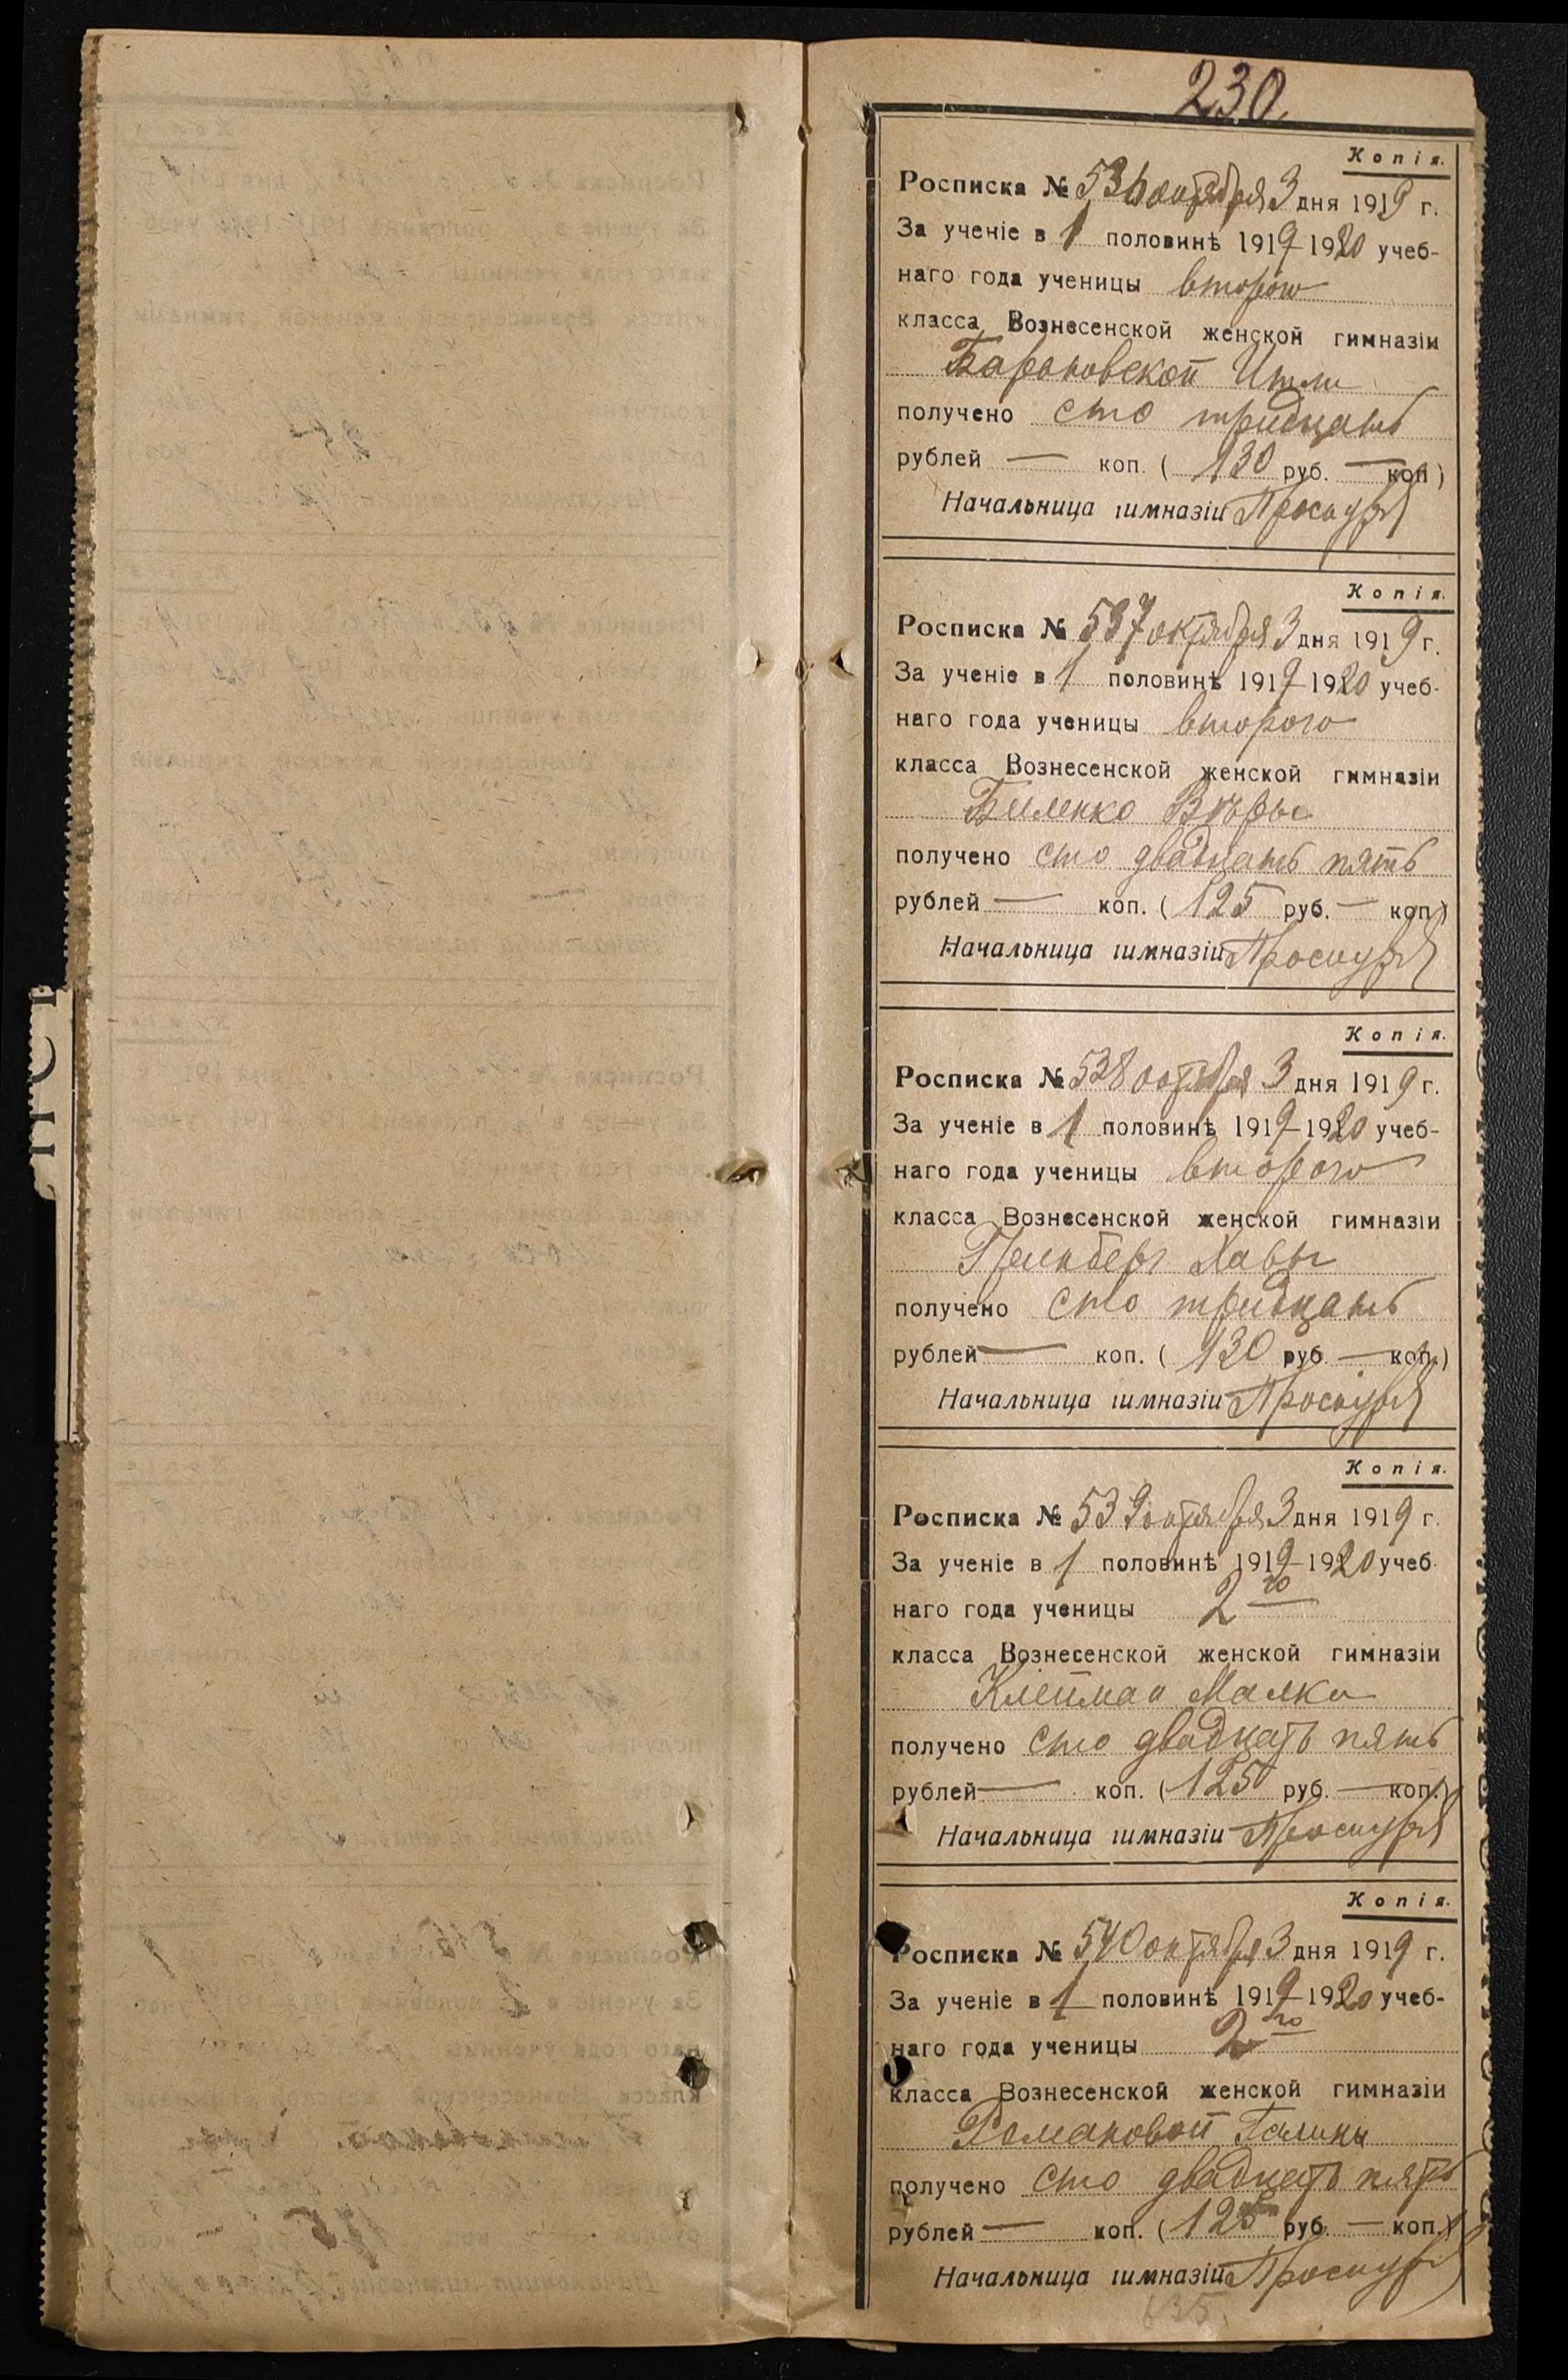 230.
Копія.
Росписка № 536 октября 3 дня 1919 г.
За ученіе в 1 половинѣ 1919-1920 учеб-
наго года ученицы второго
класса Вознесенской женской гимназіи
Барановской
получено сто тридцать
рублей — коп. ( 130 руб. — коп )
Начальница гимназіи
Копія.
Росписка № 537 октября 3 дня 1919 г.
За ученіе в 1 половинѣ 1919-1920 учеб-
наго года ученицы второго
класса Вознесенской женской гимназіи
Биленко Вѣры
получено сто двадцать пять
рублей — коп. ( 125 руб. — коп )
Начальница гимназіи
Копія.
Росписка № 538 октября 3 дня 1919 г.
За ученіе в 1 половинѣ 1919-1920 учеб-
наго года ученицы второго
класса Вознесенской женской гимназіи
Хавы
получено сто тридцать
рублей — коп. ( 130 руб — коп.)
Начальница гимназіи
Копія.
Росписка № 539 октября 3 дня 1919 г.
За ученіе в 1 половинѣ 1919-1920 учеб-
наго года ученицы 2го
класса Вознесенской женской гимназіи
Клейман Малки
получено сто двадцать пять
рублей — коп. ( 125 руб. — коп.)
Начальница гимназіи
Копія.
Росписка № 540 октября 3 дня 1919 г.
За ученіе в 1 половинѣ 1919-1920 учеб-
наго года ученицы 2го
класса Вознесенской женской гимназіи
Романовой Галины
получено сто двадцать пять
рублей — коп. ( 125 руб. — коп.)
Начальница гимназіи
635.